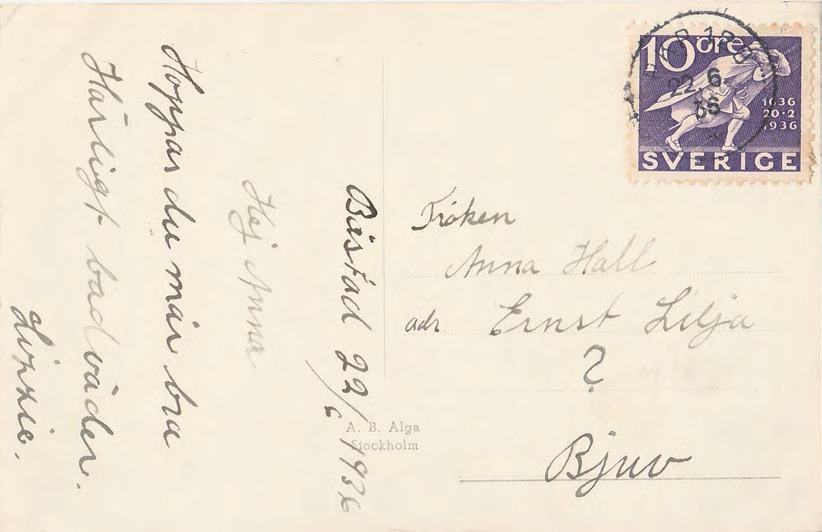 Båstad 22/6 1936
Hej Anna
Hoppas du mår bra
Härligt badväder.
Lizzie.
10 öre
1636
20·2
1936
SVERIGE
22.6.36
Fröken
Anna Hall
adr. Ernst Lilja
?
Bjuv
A. B. Alga
Stockholm